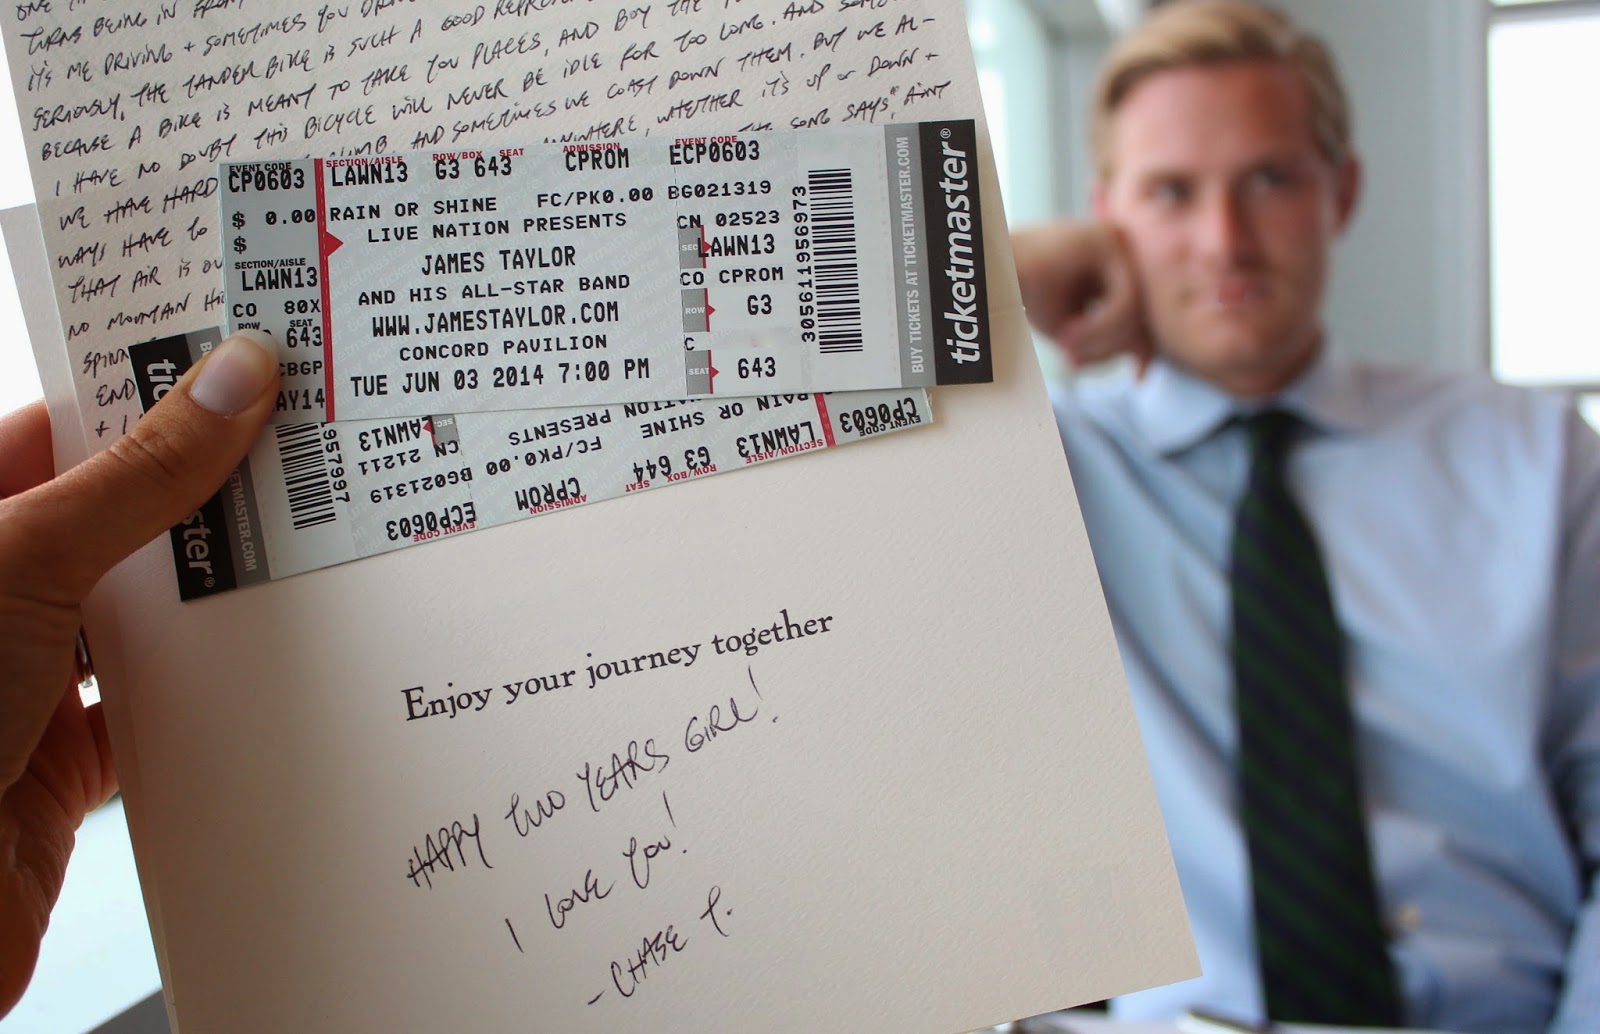 TURNS BEING IN FRONT
IT'S ME DRIVING + SOMETIMES YOU
SERIOUSLY, THE TANDEM BIKE IS SUCH A GOOD
BECAUSE A BIKE IS MEANT TO TAKE YOU PLACES, AND BOY
I HAVE NO DOUBT THIS BICYCLE WILL NEVER BE IDLE FOR TOO LONG. AND
WE HAVE HARD CLIMB. AND SOMETIMES WE COAST DOWN THEM. BUT WE AL-
WAYS HAVE TO ANYWHERE, WHETHER IT'S UP OR DOWN +
THAT AIR IS THE SONG SAYS "AIN'T
NO MOUNTAIN
END
EVENT CODE
CP0603
$ 0.00
$
SECTION/AISLE
LAWN13
CO 80X
ROW SEAT
643
CBGP
AY14
SECTION/AISLE ROW/BOX SEAT ADMISSION EVENT CODE
LAWN13 G3 643 CPROM ECP0603
RAIN OR SHINE FC/PK0.00 BG021319
LIVE NATION PRESENTS
JAMES TAYLOR
AND HIS ALL-STAR BAND
WWW.JAMESTAYLOR.COM
CONCORD PAVILION
TUE JUN 03 2014 7:00 PM
CN 02523
SEC LAWN13
CO CPROM
ROW G3
C
SEAT 643
305611956973
BUY TICKETS AT TICKETMASTER.COM
ticketmaster®
EVENT CODE
CP0603
SECTION/AISLE ROW/BOX SEAT ADMISSION EVENT CODE
LAWN13 G3 644 CPROM ECP0603
RAIN OR SHINE FC/PK0.00 BG021319
NATION PRESENTS CN 21211
SEC. LAWN13
957997
ETMASTER.COM
ster®
Enjoy your journey together
HAPPY TWO YEARS GIRL!
I LOVE YOU!
- CHASE T.